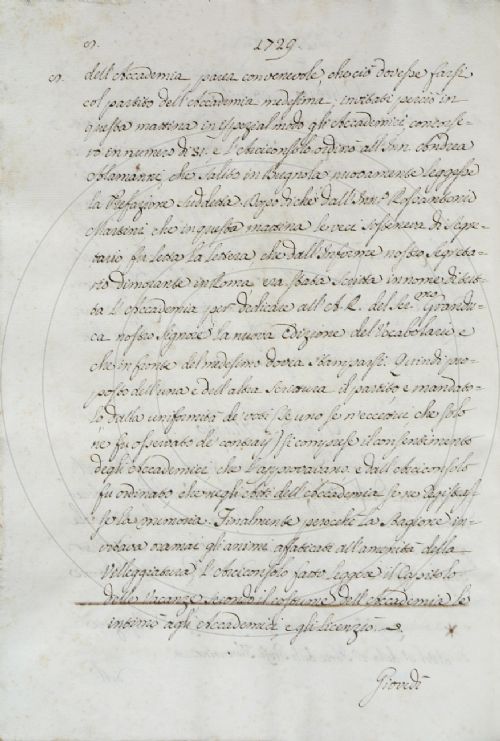 1729.
dell'Accademia parea convenevole, che ciò dovesse farsi
col partito dell'Accademia medesima; invitati perciò in
questa mattina in ispezial modo gli Accademici concorse-
ro in numero di 31. e l'Arciconsolo ordinò all'Inn. Andrea
Alamanni, che salito in Bugnola nuovamente leggesse
la Prefazione suddetta. Dopo di che dall'Inn. Rosso Antonio
Martini che in questa mattina le veci sosteneva di Segre-
tario fu letta la lettera che dall'Informe nostro Segreta-
rio dimorante in Roma era stata scritta in nome di tut-
ta l'Accademia per dedicare all'A. R. del Ser.mo Grandu-
ca nostro Signore la nuova Edizione del Vocabolario e
che in fronte del medesimo dovea stamparsi. Quindi pro-
posto dell'una e dell'altra scrittura il partito e mandato-
lo dalla uniformità de' voti (se uno se n'eccettui che solo
ne fu osservato de' contrarj) si comprese il consentimento
degli Accademici che l'approvavano, e dall'Arciconsolo
fu ordinato che negli Atti dell'Accademia se ne registras-
se la memoria. Finalmente perchè la Stagione in-
vitava oramai gli animi affaticati all'amenità della
Villeggiatura, l'Arciconsolo fatto leggere il Capitolo
delle Vacanze secondo il costume dell'Accademia le
intimò agli Accademici, e gli licenziò.
Giovedì